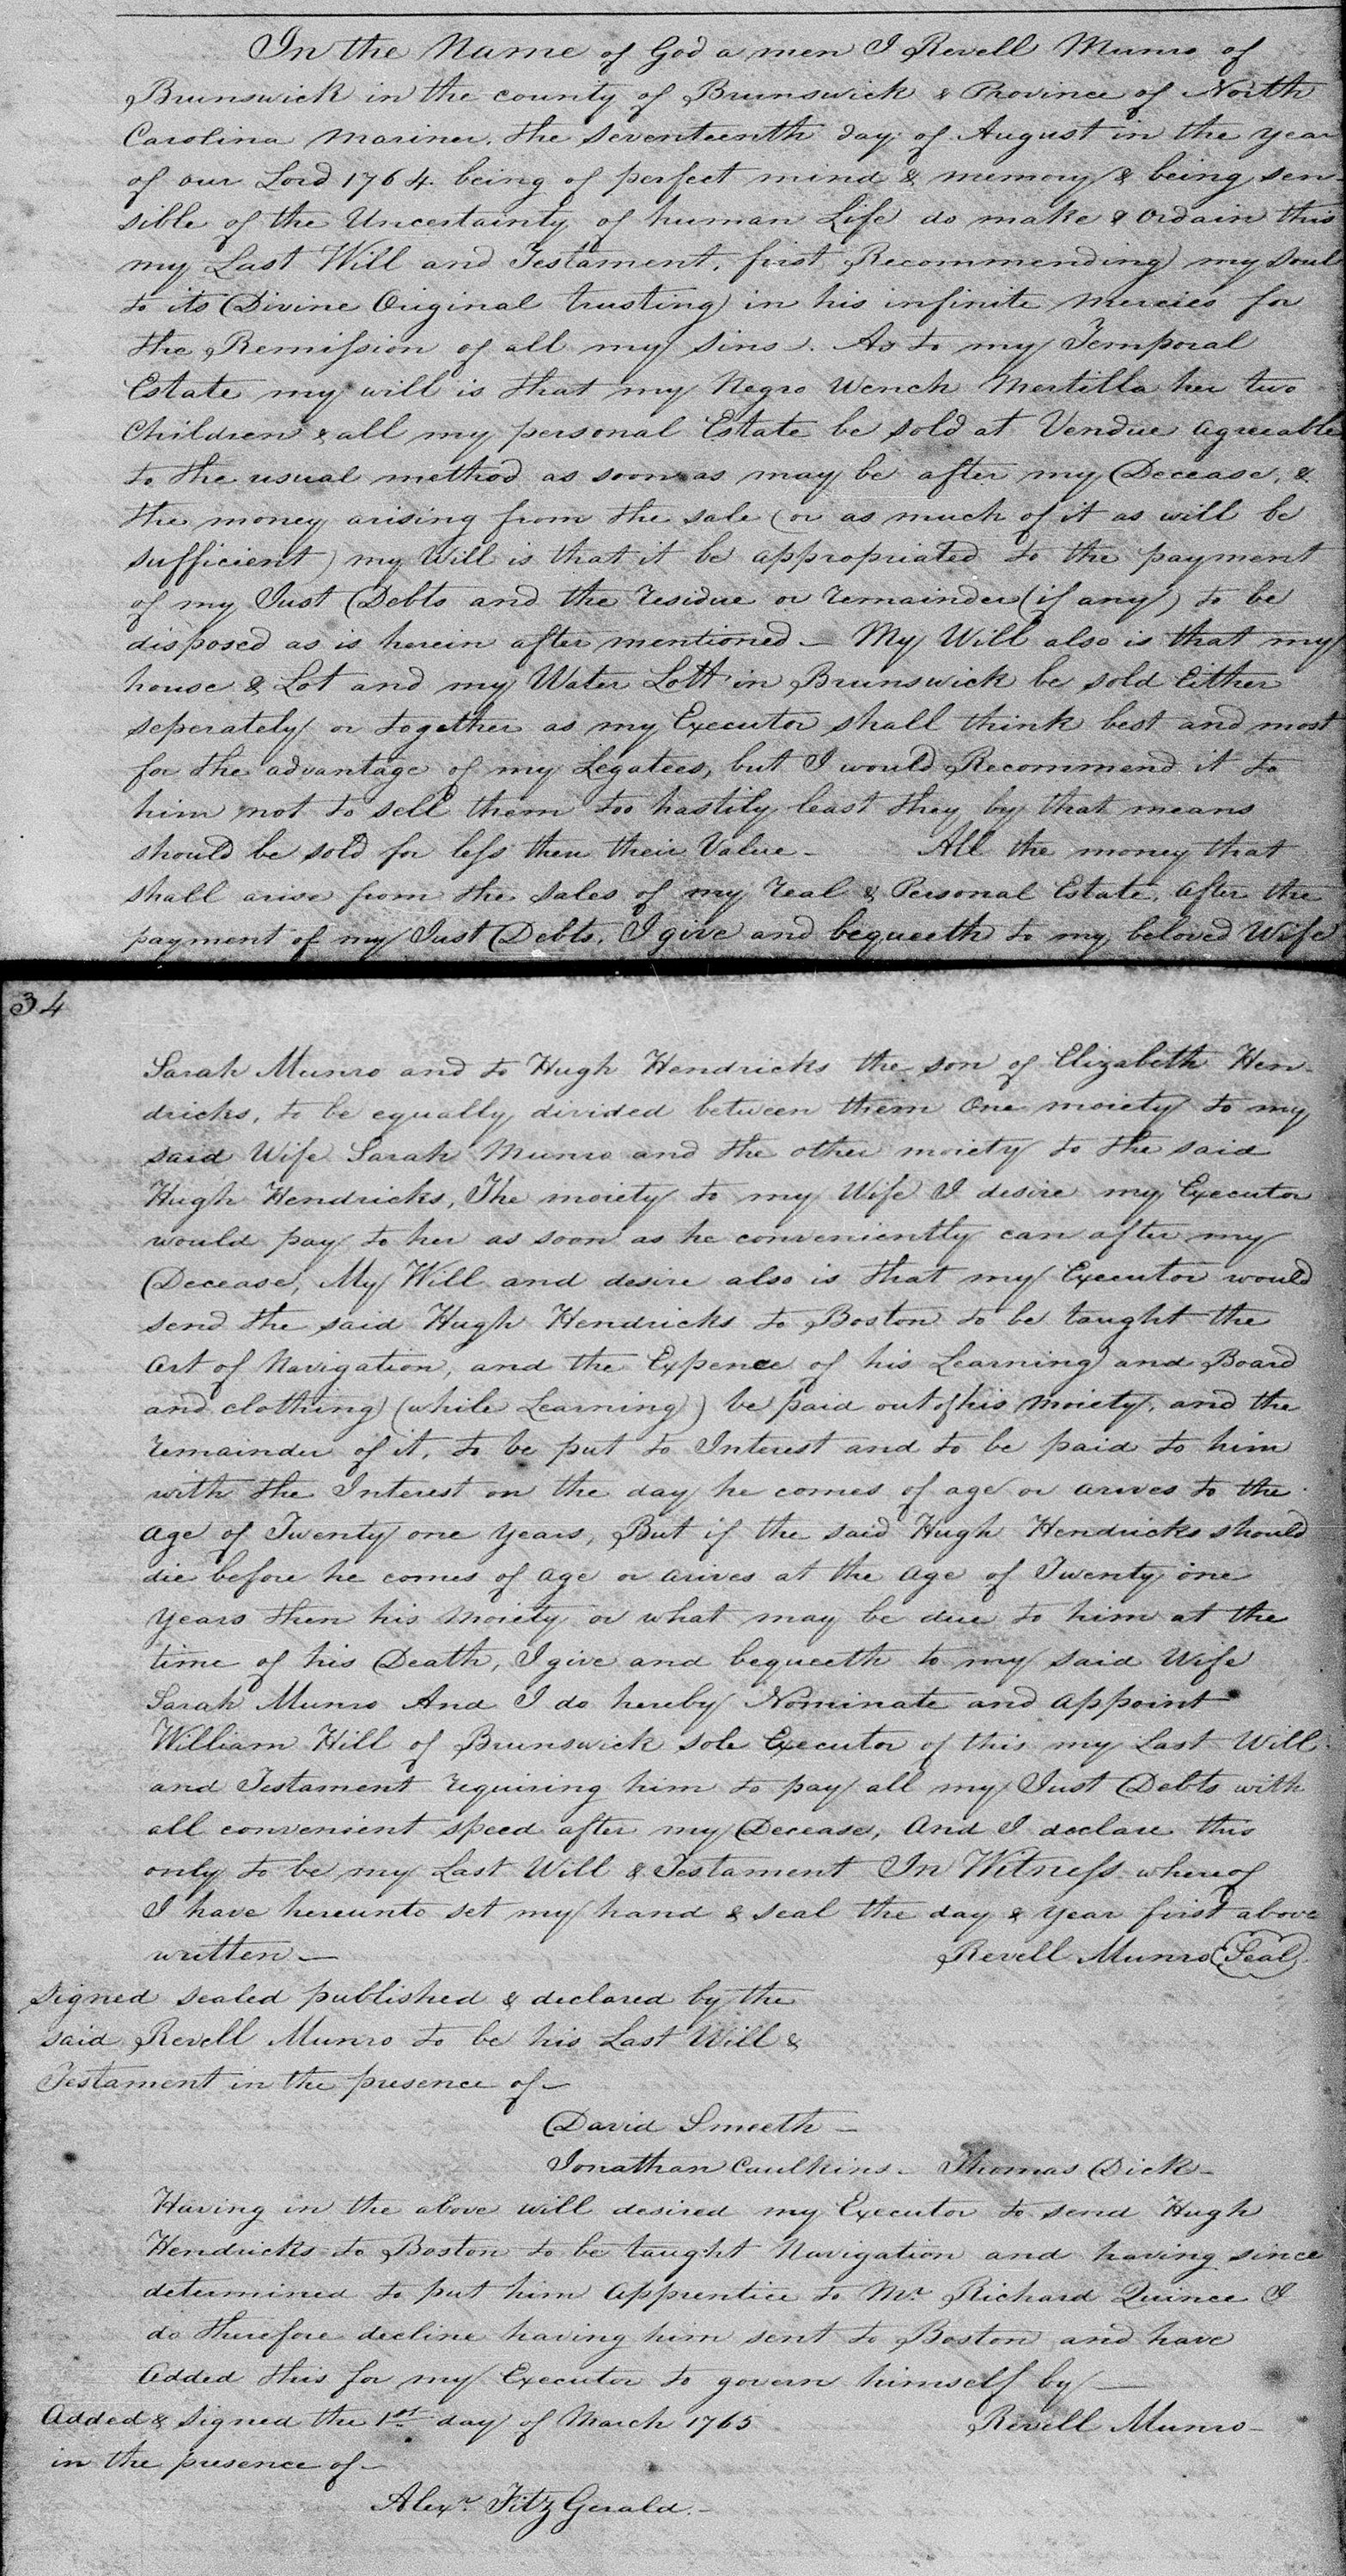 In the Name of God a men I Revell Munro of
Brunswick in the county of Brunswick & Province of North
Carolina Mariner, the seventeenth day of August in the year
of our Lord 1764. being of perfect mind & memory & being sen-
sible of the Uncertainty of human Life do make & Ordain this
my Last Will and Testament, first Recommending my Soul
to its Divine Original trusting in his infinite Mercies for
the Remission of all my sins. As to my Temporal
Estate my will is that my Negro Wench Mertilla her two
Children & all my personal Estate be sold at Vendue agreeable
to the usual method as soon as may be after my Decease, &
the money arising from the sale (or as much of it as will be
sufficient) my Will is that it be appropriated to the payment
of my Just Debts and the residue or remainder (if any) to be
disposed as is herein after mentioned - My Will also is that my
house & Lot and my Water Lott in Brunswick be sold Either
seperately or together as my Executor shall think best and most
for the advantage of my Legatees, but I would Recommend it to
him not to sell them too hastily least they by that means
should be sold for less then their Value - All the money that
shall arise from the sales of my real & Personal Estate, after the
payment of my Just Debts, I give and bequeeth to my beloved Wife
34
Sarah Munro and to Hugh Hendricks the son of Elizabeth Hen-
dricks, to be equally divided between them One moiety to my
said Wife Sarah Munro and the other moiety to the said
Hugh Hendricks, The moiety to my Wife I desire my Executor
would pay to her as soon as he conveniently can after my
Decease, My Will and desire also is that my Executor would
send the said Hugh Hendricks to Boston to be taught the
Art of Navigation, and the Expence of his Learning and Board
and clothing (while Learning) be paid out of his Moiety, and the
remainder of it, to be put to Interest and to be paid to him
with the Interest on the day he comes of age or arives to the
Age of Twenty one Years, But if the said Hugh Hendricks should
die before he comes of age or arives at the age of Twenty one
Years then his Moiety or what may be due to him at the
time of his Death, I give and bequeeth to my said Wife
Sarah Munro And I do hereby Nominate and appoint
William Hill of Brunswick sole Executor of this my Last Will
and Testament requiring him to pay all my Just Debts with
all convenient speed after my Decease, And I declare this
only to be my Last Will & Testament In Witness whereof
I have hereunto set my hand & seal the day & Year first above
written - Revell Munro Seal
Signed sealed published & declared by the
said Revell Munro to be his Last Will &
Testament in the presence of -
David Smeeth -
Jonathan Caulkins - Thomas Dick -
Having in the above will desired my Executor to send Hugh
Hendricks to Boston to be taught Navigation and having since
determined to put him Apprentice to Mr Richard Quince I
do therefore decline having him sent to Boston and have
Added this for my Executor to govern himself by -
Added & signed the 1st day of March 1765 Revell Munro -
in the presence of -
Alexr. Fitz Gerald. -